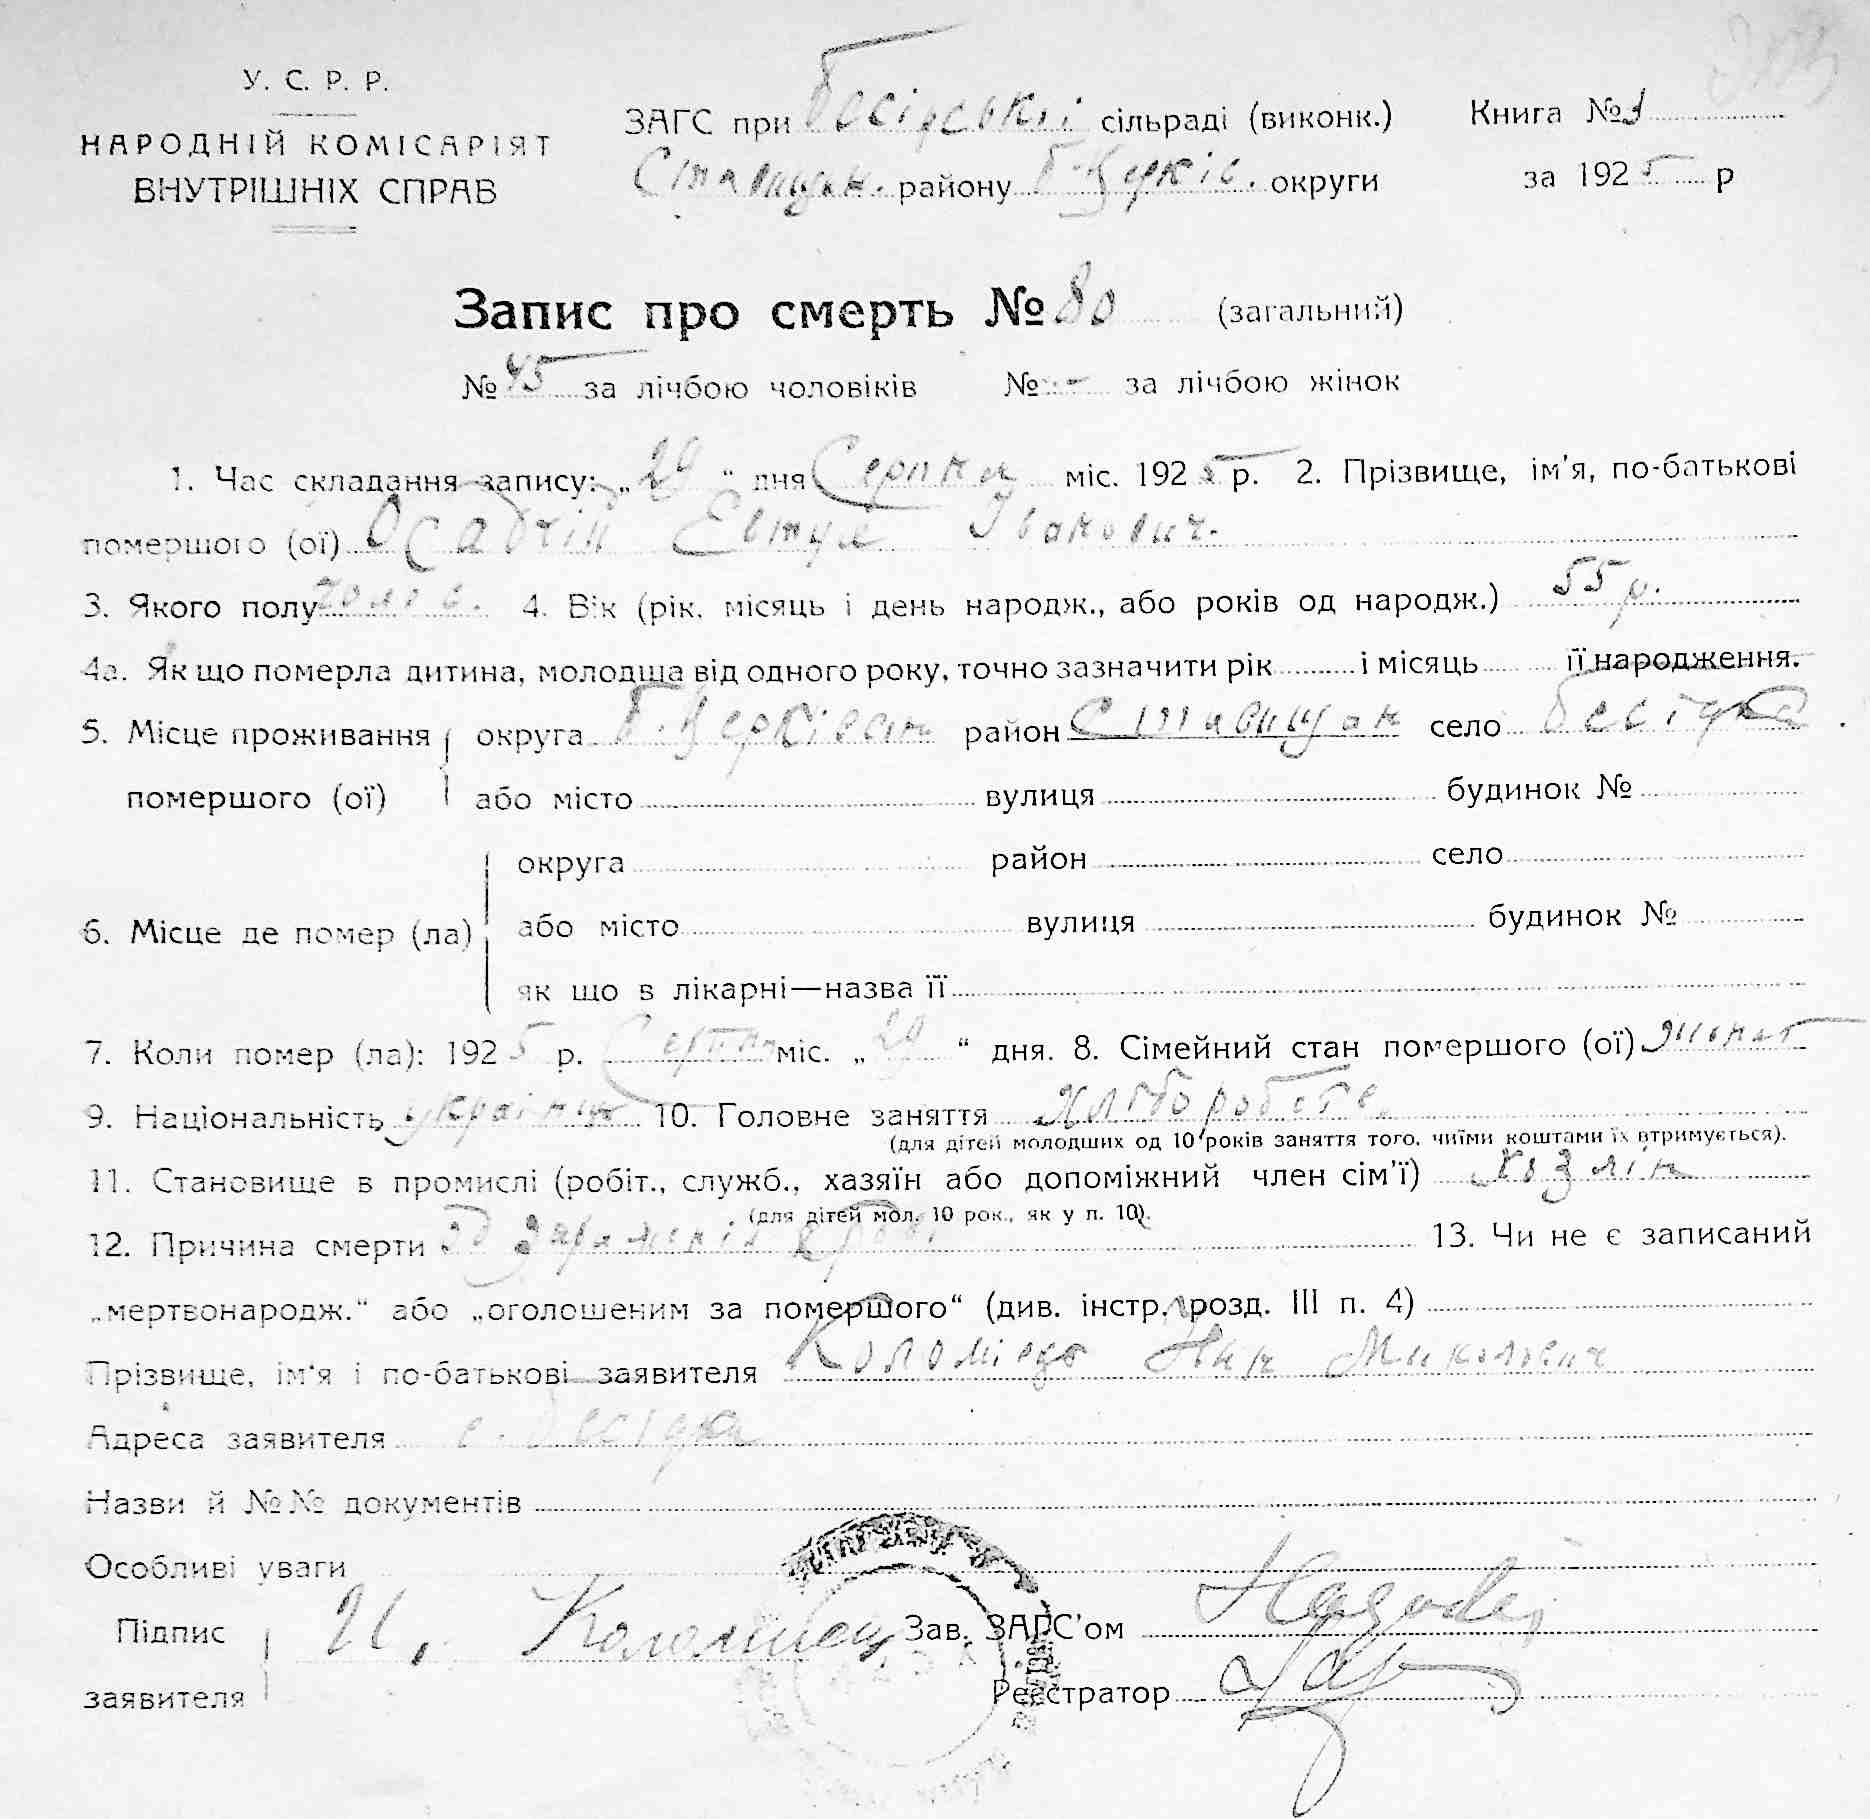 У. С. Р. Р.
НАРОДНІЙ КОМІСАРІЯТ
ВНУТРІШНІХ СПРАВ
ЗАГС при Бесідській сільраді (виконк.)
Ставищан. району Б-Церків. округи
Книга №1
за 1925 р
Запис про смерть № 80 (загальний)
№ 45 за лічбою чоловіків № - за лічбою жінок
1. Час складання запису: „29“ дня Серпня міс. 1925 р. 2. Прізвище, ім'я, по-батькові
помершого (ої) Осадчій Евтух Іванович.
3. Якого полу чолов. 4. Вік (рік, місяць і день народж., або років од народж.) 55 р.
4а. Як що померла дитина, молодша від одного року, точно зазначити рік і місяць її народження.
5. Місце проживання помершого (ої) округа Б.Церківськ район Ставищан село Бесідка
або місто вулиця будинок №
6. Місце де помер (ла) округа район село
або місто вулиця будинок №
як що в лікарні—назва її
7. Коли помер (ла): 1925 р. Серпн міс. „29“ дня. 8. Сімейний стан помершого (ої) жонат
9. Національність українц 10. Головне заняття хліборобств.
(для дітей молодших од 10 років заняття того, чиїми коштами їх втримується).
11. Становище в промислі (робіт., служб., хазяїн або допоміжний член сім'ї) хозяін
(для дітей мол. 10 рок., як у п. 10).
12. Причина смерти од зараженія крові 13. Чи не є записаний
„мертвонародж.“ або „оголошеним за помершого“ (див. інстр. розд. III п. 4)
Прізвище, ім'я і по-батькові заявителя Коломієць Микольович
Адреса заявителя с. Бесідка
Назви й №№ документів
Особливі уваги
Підпис заявителя И. Коломіиец Зав. ЗАГС'ом
Реєстратор